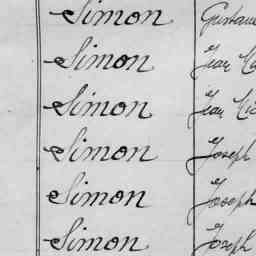 Simon Gustave
Simon Jean
Simon Jean
Simon Joseph
Simon Joseph
Simon Joseph